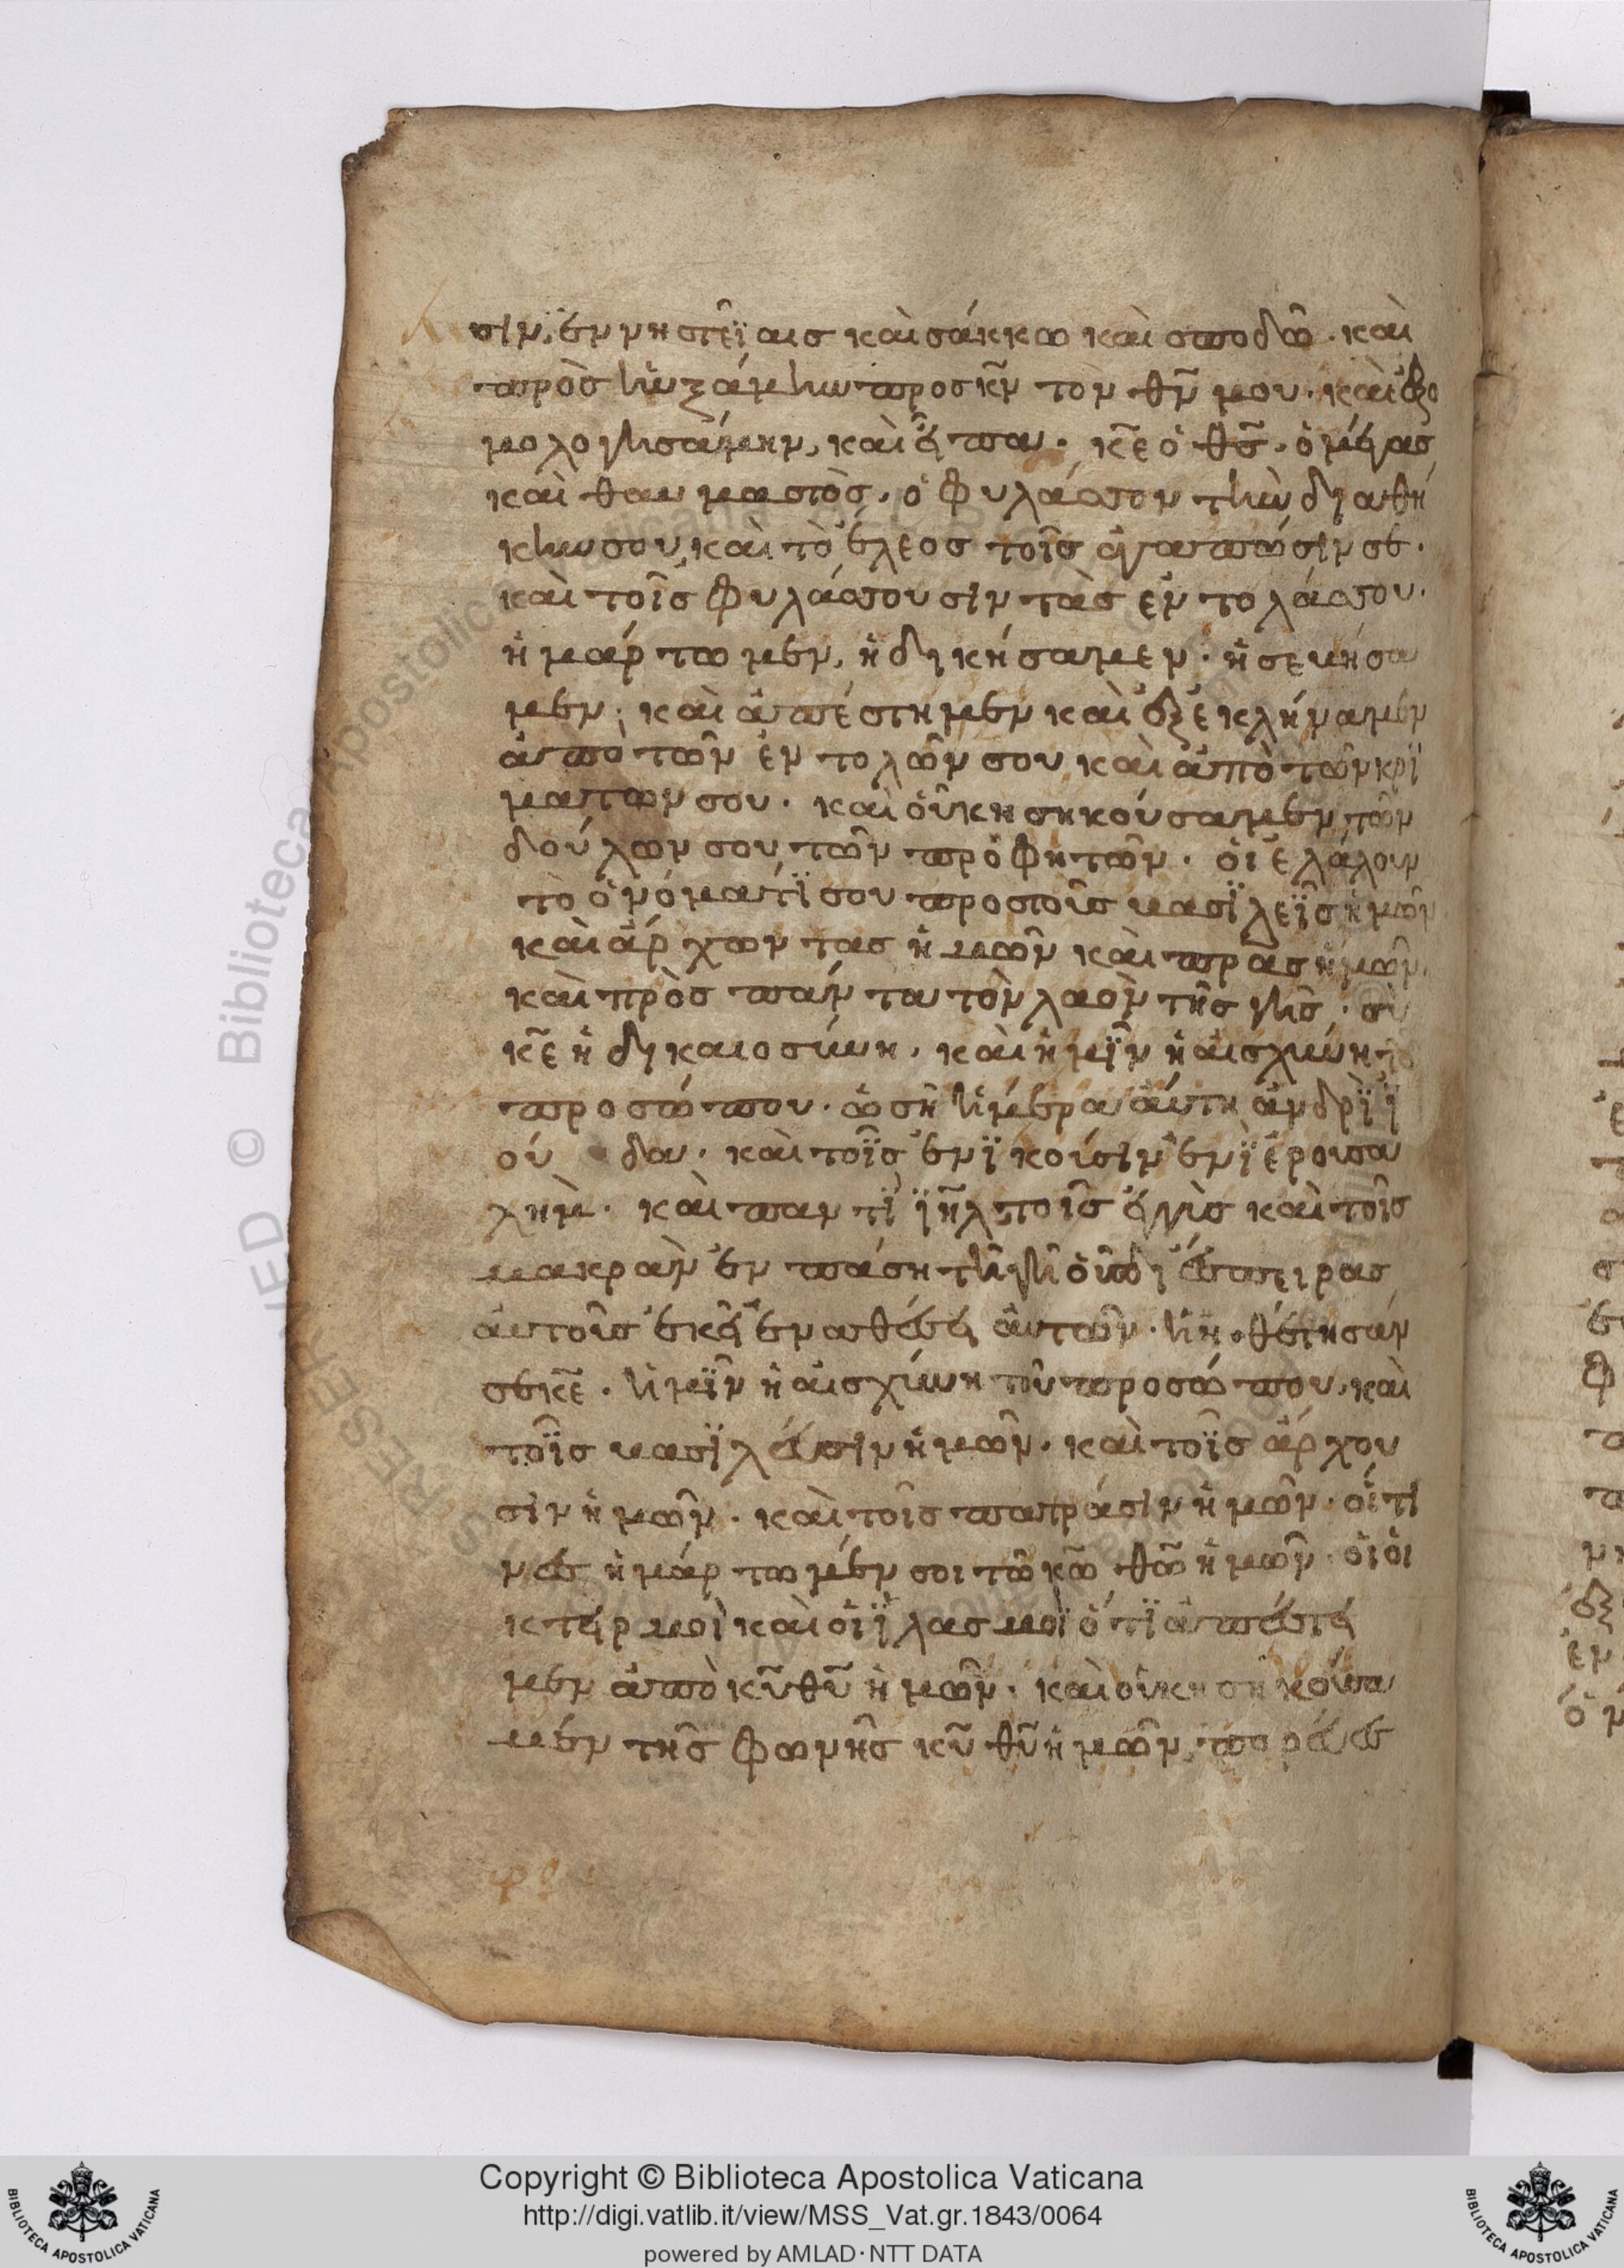 σιν, ἐν νηστεῖαις καὶ σάκκω καὶ σποδῶ · καὶ
προσηυξάμην προς κ̅ν̅ τὸν θ̅ν̅ μου · καὶ ἐξο
μολογησάμην, καὶ εἶπα · κ̅ε̅ ὁ θ̅ς̅ · ὁ μέγας
καὶ θαυμαστὸς · ὁ φυλάσσον τὴν διαθή
κην σου, καὶ τὸ ἔλεος τοῖς ἀγαπώσιν σε ·
καὶ τοῖς φυλάσσουσιν τὰς ἐντολάς σου ·
ἡμάρτωμεν, ἠδικήσαμεν · ἠσεβήσα
μεν · καὶ ἀπέστημεν καὶ ἐξεκλήναμεν
ἀπὸ τῶν ἐντολῶν σου καὶ ἀπὸ τῶν κρϊ
μάτων σου · καὶ οὐκ ησηκούσαμεν τῶν
δούλων σου τῶν προφητῶν · οἱ ἐλάλουν
τὸ ὀνόματϊ σου προς τοῦς βασϊλεῖς ἡμῶν
καὶ ἄρχωντας ἡμῶν καὶ π̅ρ̅ας ἡμῶν,
καὶ πρὸς πάντα τὸν λαὸν τῆς γῆς · σὺ
κ̅ε̅ ἡ δικαιοσύνη · καὶ ἡμῖν ἡ αἰσχύνη τοῦ
προσώπου · ὡς ἡ ἡμέρα αὕτη ἀνδρὶ ϊ
ούδα · καὶ τοῖς ἐνϊκοίσιν ἐν ϊερουσα
λημ · καὶ παντὶ ϊη̅λ̅ τοῖς ἐγγὶς καὶ τοῖς
μακρὰν ἐν πάση τῆ γῆ οὗ διέσπειρας
αὐτοῖς ἐκεῖ ἐν αθεσεί αὐτῶν · ἧ ηθέτησάν
σε κ̅ε̅ · ἡμῖν ἡ αἰσχύνη τοῦ προσώπου, καὶ
τοῖς βασϊλεύσιν ἡμῶν · καὶ τοῖς ἄρχου
σιν ἡμῶν · καὶ τοῖς πατράσιν ἡμῶν · οἵτι
νες ἡμάρτωμέν σοι τῶ κ̅ω̅ θ̅ω̅ ἡμῶν · οἱ οἰ
κτειρμοὶ καὶ οἱ ϊλασμοὶ ὅτϊ ἀπέστεί
μεν ἀπὸ κ̅υ̅ θ̅υ̅ ἡμῶν · καὶ οὐκ ησηκούσα
μέν τῆς φωνῆς κ̅υ̅ θ̅υ̅ ἡμῶν,
Copyright © Biblioteca Apostolica Vaticana
http://digi.vatlib.it/view/MSS_Vat.gr.1843/0064
powered by AMLAD·NTT DATA
BIBLIOTECA APOSTOLICA VATICANA
BIBLIOTECA APOSTOLICA VATICANA